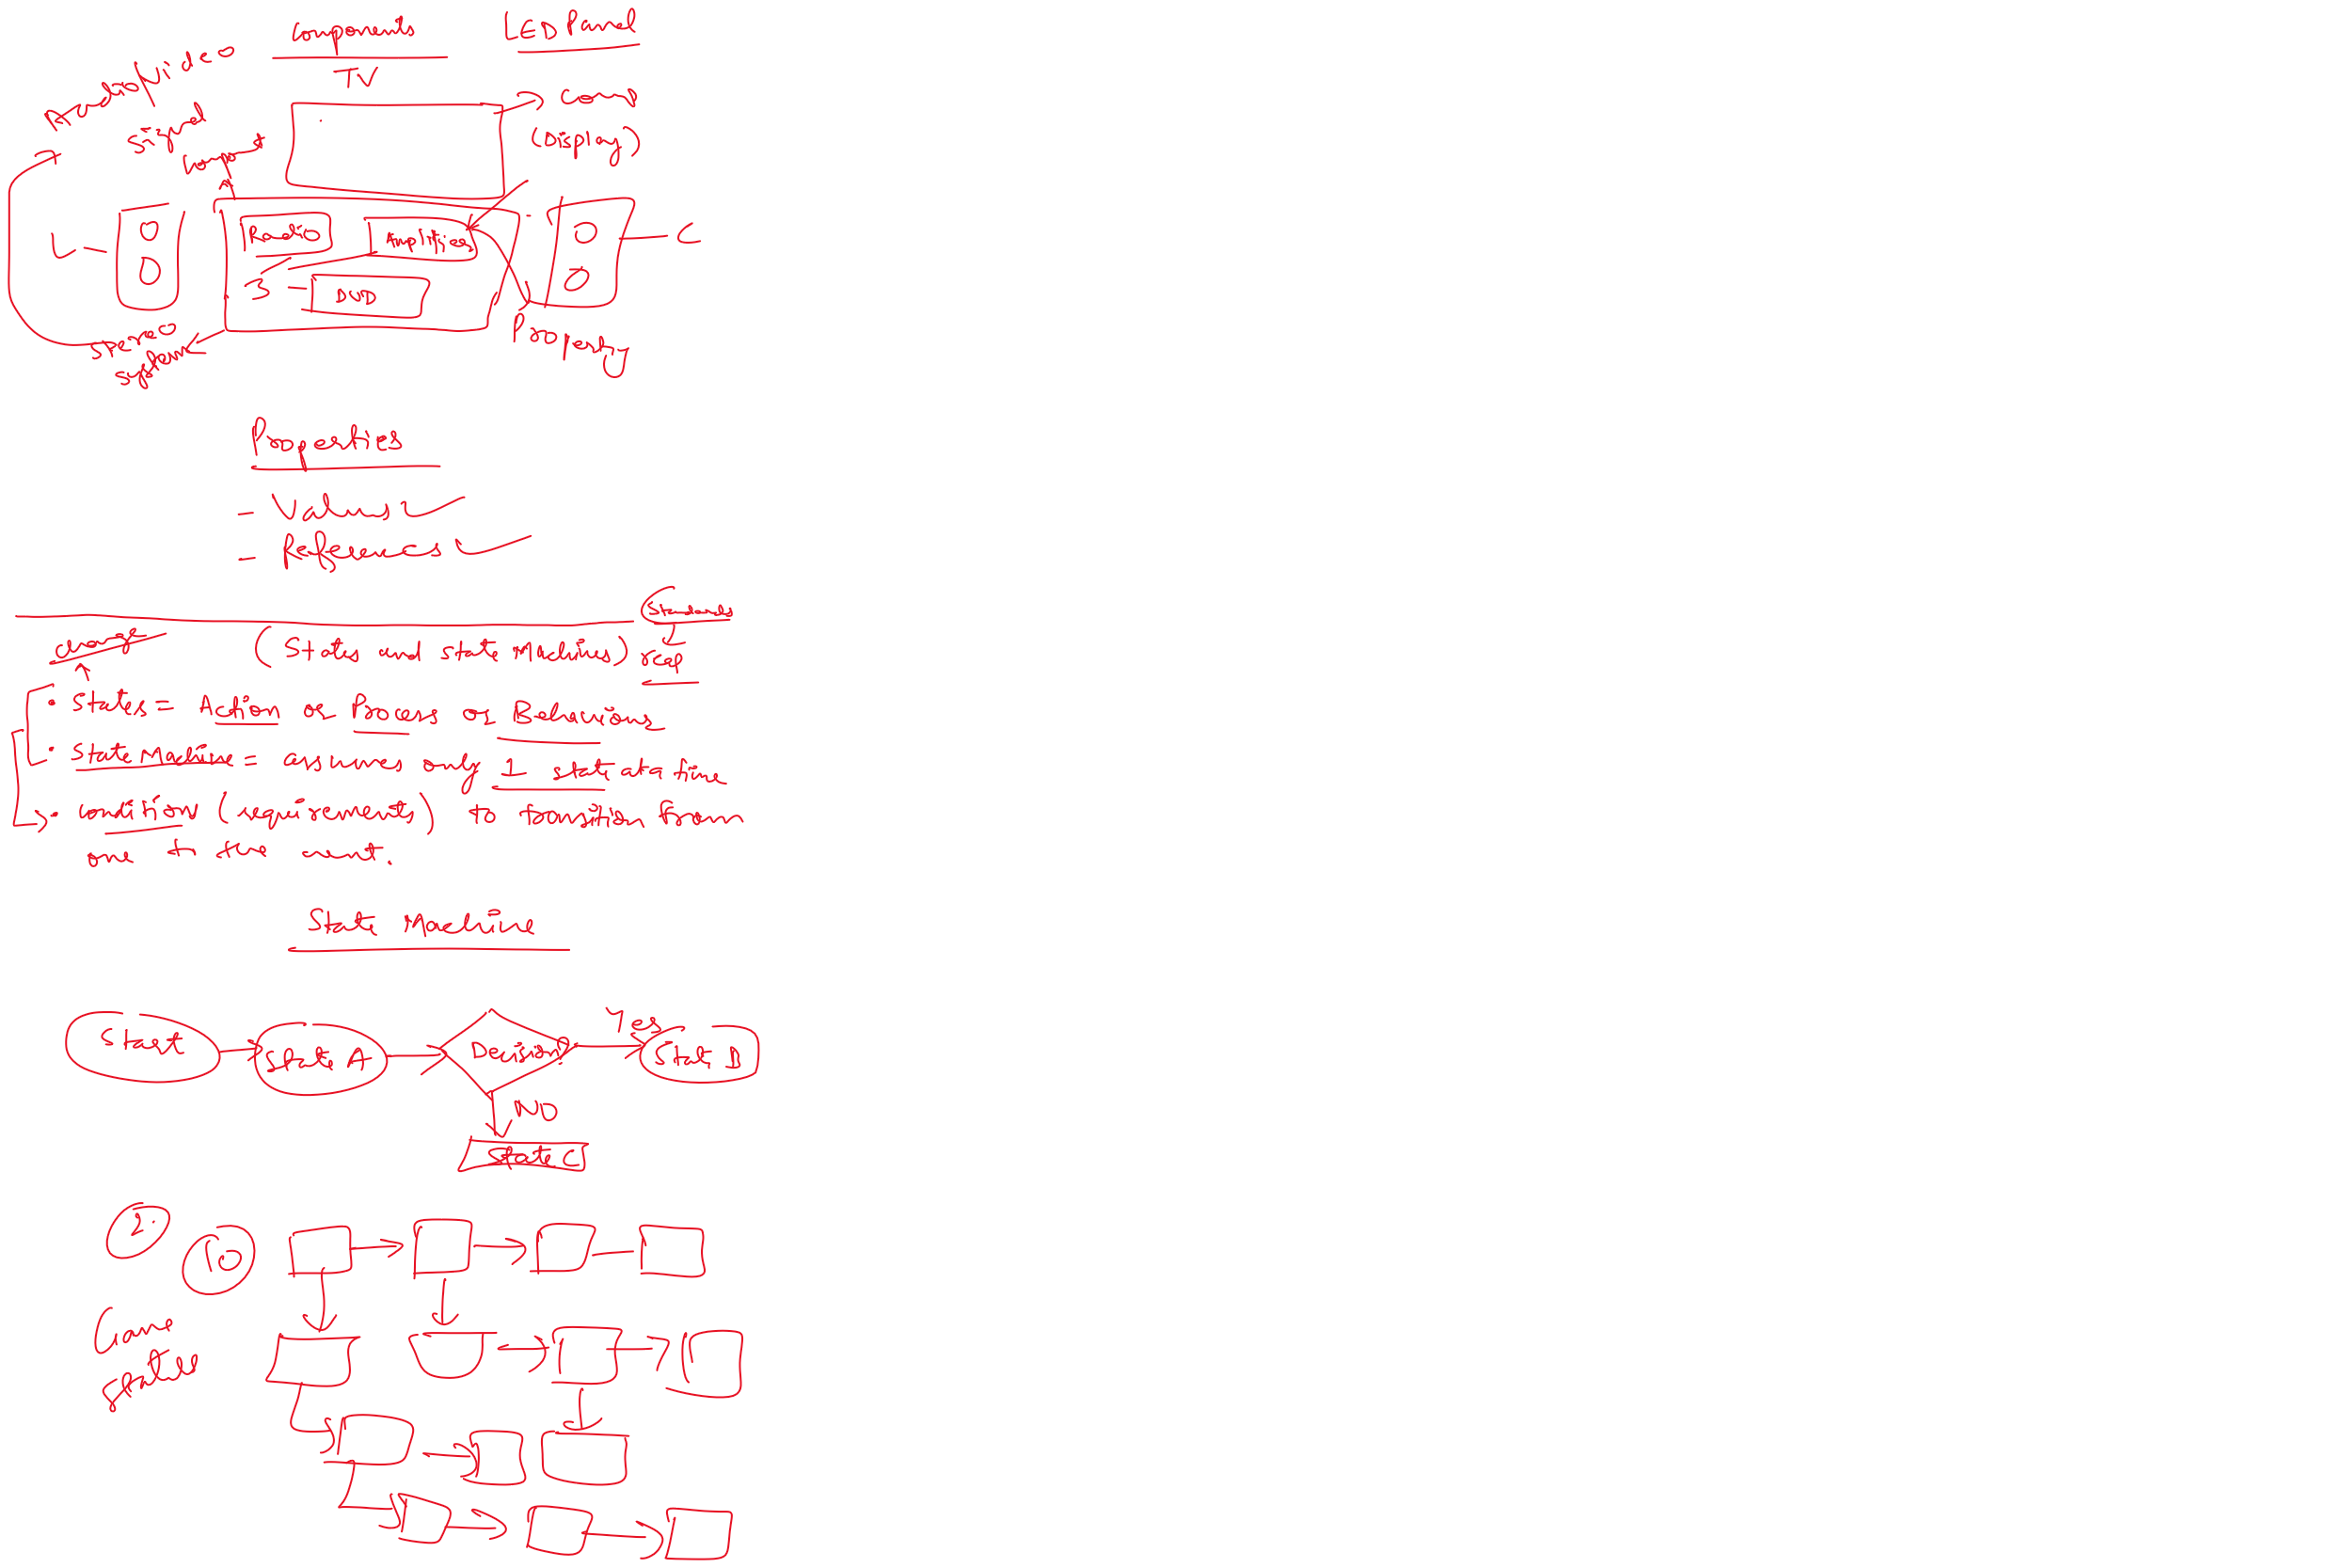 Components
LED Panel
TV
Audio/Video
Signal
Input
comp
(Display)
L
Radio
Amplifier
C
3
DVD
Stereo
System
Property
Properties
- Values
- References
Standards
change
(States and state Machines)
req
• States = Action or Process or Behaviours
• State Machine = assumes only 1 state at a time
• condition (requirements) to transition from
one to the next.
State Machine
Start
State A
Decision?
Yes
State B
NO
State C
2.
10
Game